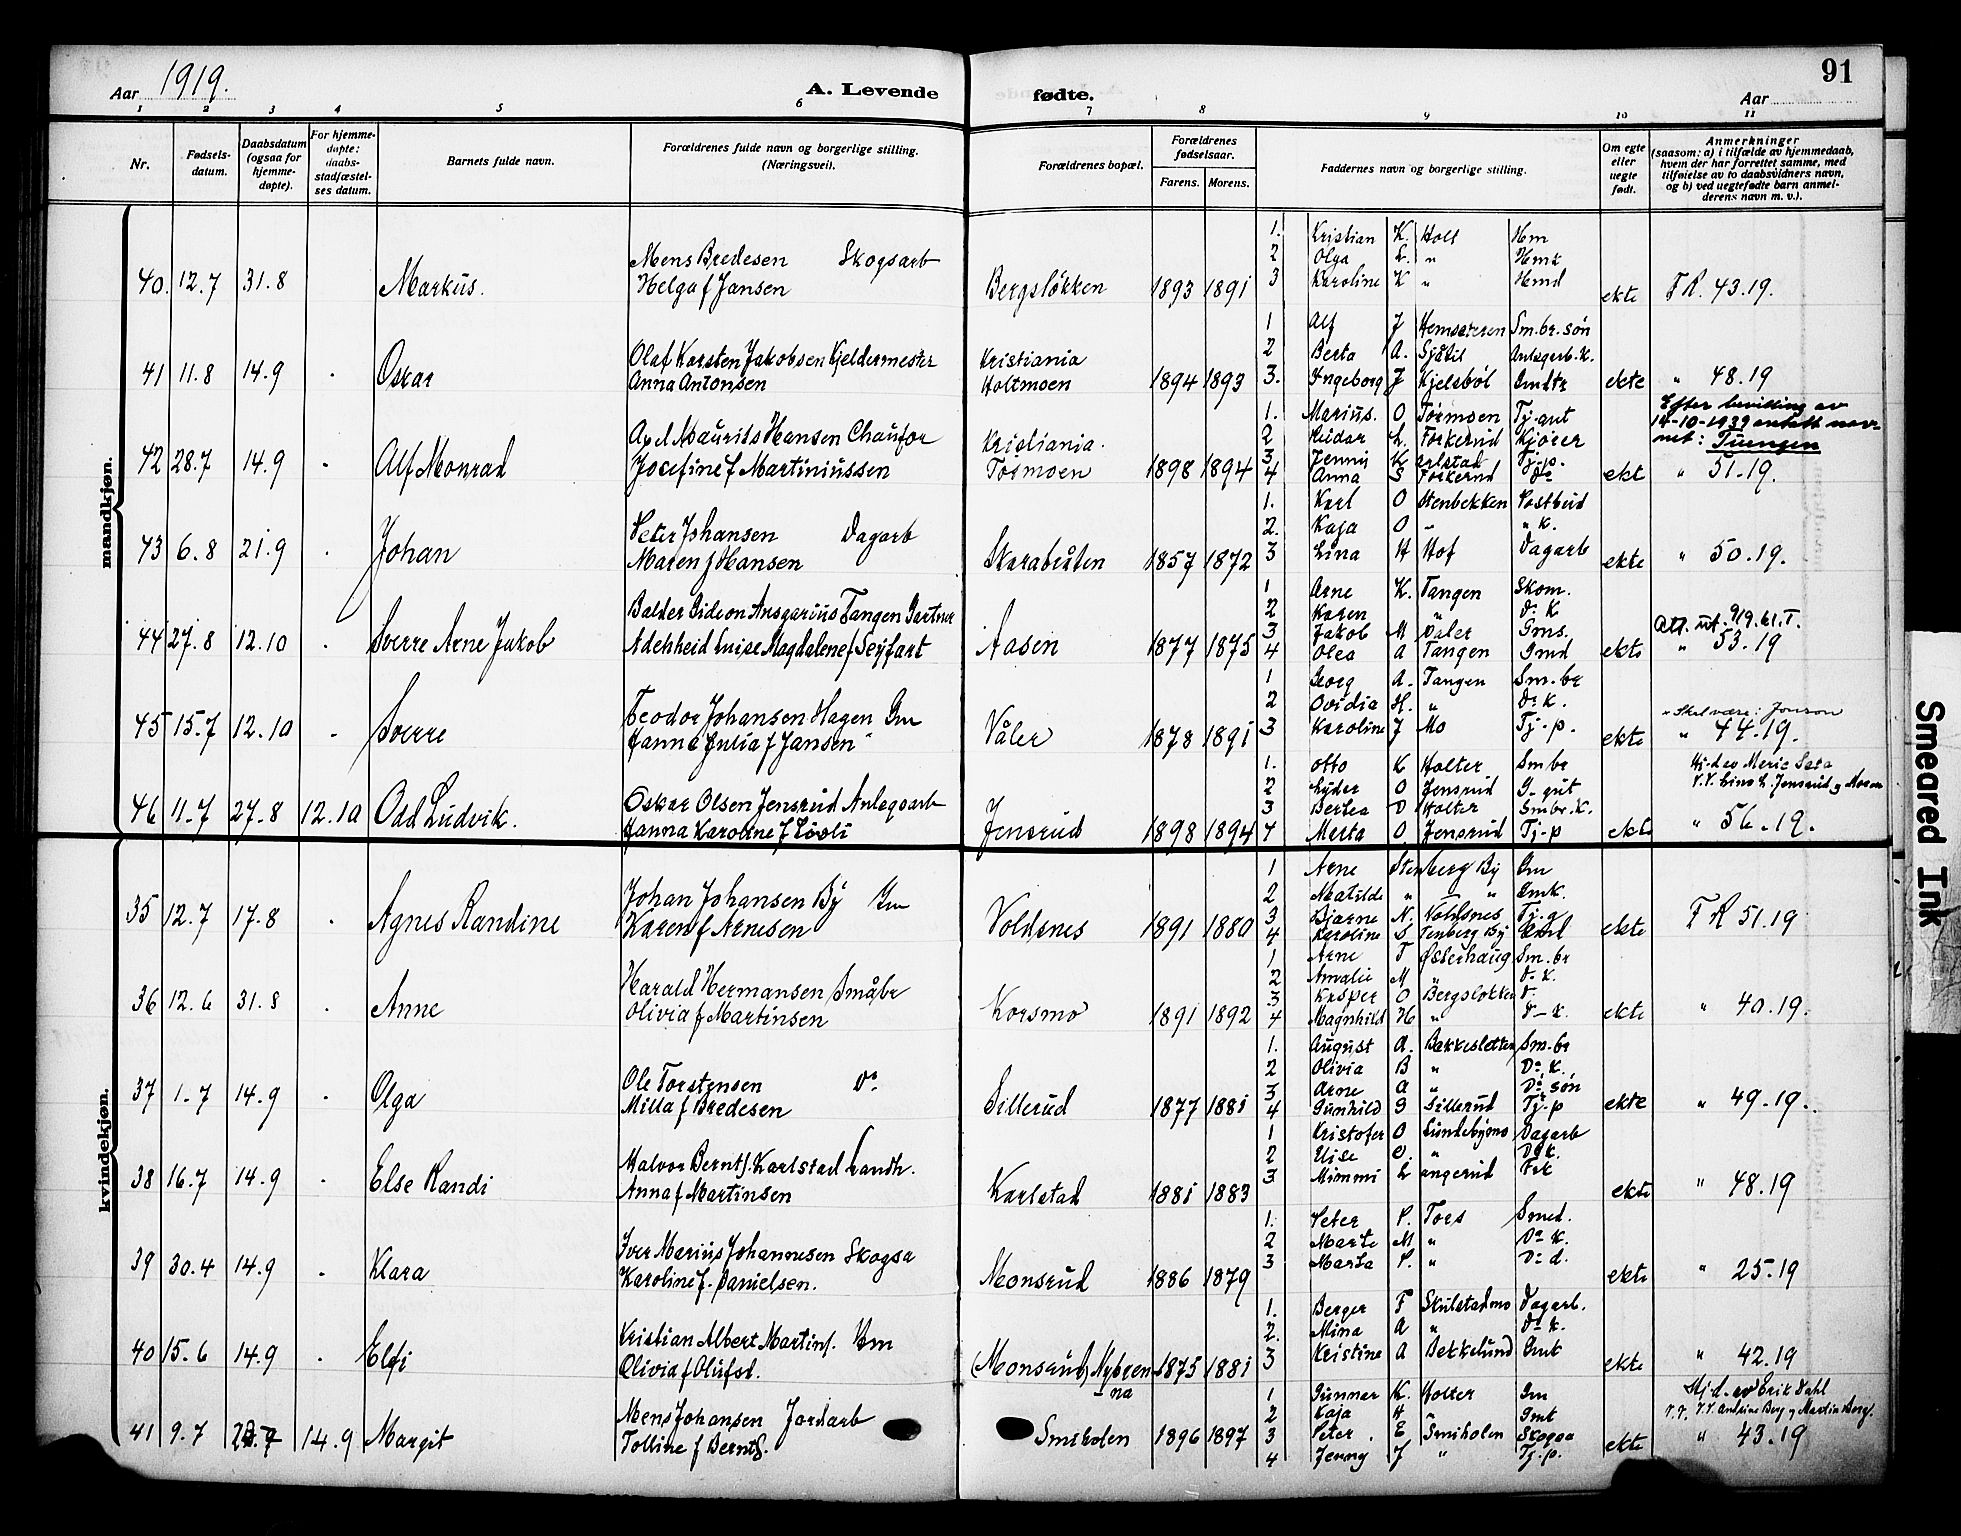 Aar 1919.
A. Levende
fødte.
91
Aar
1 2 3 4 5 6 7 8 9 10 11
Nr.
Fødsels-
datum.
Daabsdatum
(ogsaa for
hjemme-
døpte).
For hjemme-
døpte:
daabs-
stadfæstel-
ses datum.
Barnets fulde navn.
Forældrenes fulde navn og borgerlige stilling.
(Næringsvei).
Forældrenes bopæl.
Forældrenes
fødselsaar.
Farens. Morens.
Faddernes navn og borgerlige stilling.
Om egte
eller
uegte
født.
Anmerkninger
(saasom: a) i tilfælde av hjemmedaab,
hvem der har forrettet samme, med
tilføielse av to daabsvidners navn,
og b) ved uegtefødte barn anmel-
derens navn m. v.).
mandkjøn.
40. 12.7 31.8 Markus.
Mens Bredesen Skogsarb
Helga f Jansen
Bergsløkken 1893 1891
1. Kristian K. Holt Hm
2 Olga L. " Hmk
3 Karoline K " Hmd
ekte F R. 43.19.
41 11.8 14.9 Oskar
Olaf Karsten Jakobsen Kjeldermester
Anna Antonsen
Kristiania
Holtmoen 1894 1893
1 Alf J Hemseteren Sm.br.søn
2 Berta A. Sjøtil Anlegarb.K.
3. Ingeborg J Kjelsböl Gmdtr
ekte " 48.19
42 28.7 14.9 Alf Monrad
Axel Maurits Hansen Chaufør
Josefine f Martiniussen
Kristiania.
Tørmoen 1898 1894
1. Marius. O Tørmoen Tj.gut
2 Reidar L. Forkerud Kjører
3 Jenny Karlstad Tj.p.
4 Anna S Forkerud Do
ekte " 51.19.
Efter bevilling av
14-10-1939 antatt nav-
net: Tuengen
43 6.8 21.9 Johan
Peter Johansen Dagarb
Maren f Hansen
Skarabråten 1857 1872
1. Karl O Stenbekken Postbud
2. Kaja O " " k.
3 Lina H Hof Dagarb
ekte " 50.19.
44 27.8 12.10 Sverre Arne Jakob
Balder Gideon Ansgarius Tangen Gartner
Adelheid Luise Magdalene f Seyfart
Aasen 1877 1875
1 Arne K. Tangen Skom.
2 Karen " Do K
3 Jakob M Valer Gms.
4 Olea A Tangen Gmd
ekte Att. ut. 9/9.61.T.
" 53.19
45 15.7 12.10 Sverre
Teodor Johansen Hagen Gm
Hanna Julia f Jansen "
Våler 1878 1891
1 Georg A. Tangen Sm.br
2 Ovidia H. " Do K.
3 Karoline J Mo Tj.p.
ekte " Skal være: Jonson
" 44.19.
46 11.7 27.8 12.10 Odd Ludvik.
Oskar Olsen Jensrud Anlegsarb
Hanna Karoline f Lövli
Jensrud 1898 1894
1. Otto K Holter Sm br
2 Lyder O Jensrud G-gut
3 Bertea O Holter Smbr.K.
4 Marta O. Jensrud Tj-p
ekte " 56.19.
kvindekjøn.
35 12.7 17.8 Agnes Randine
Johan Johansen By Gm
Karen f Arnesen
Voldsnes 1891 1880
1 Arne Stenberg By Gm
2 Matilde " " " Gmk.
3 Bjarne N. Voldsnes Tj.g
4 Karoline Stenberg By
ekte F R 51.19
36 12.6 31.8 Anne
Harald Hermansen Småbr
Olivia f Martinsen
Korsmo 1891 1892
1 Arne T Østerhaug Sm.br
2 Amalie M " D. K.
3 Kasper O Bergsløkken D.
4 Magnhild H " D-K.
ekte " 40.19.
37 1.7 14.9 Olga
Ole Torstensen Do
Milla f Bredesen
Sillerud 1877 1881
1. August A. Bakkesletten Sm.br
2 Olivia B " Do K.
3 Arne A " Do søn
4 Gunhild G Sillerud Tj-p
ekte " 49.19.
38 16.7 14.9 Else Randi
Halvor Berntf. Karlstad Landh.
Anna f Martinsen
Karlstad 1881 1883
1 Kristofer O Lundebymo Dagarb
2 O. " Do K.
3 Mimmi Langerud Frk
ekte " 48.19
39 30.4 14.9 Klara
Iver Marius Johannesen Skogsa
Karoline f. Danielsen.
Monsrud 1886 1879
1. Peter P. Tors Smed.
2 Marte M " Do K.
3 Marta P. " Do d.
ekte " 25.19
40 15.6 14.9 Elfi
Kristian Albert Martinf. Hm
Olivia f Olufsd.
(Monsrud) Nybren
-na 1875 1881
1. Berger F Skulstadmo Dagarb.
2. Mina A " Do K.
3 Kristine A Bekkelund Gmk
ekte " 42.19
41 9.7 14.9 Margit
Mens Johansen Jordarb
Tolline f Berntf.
Smiholen 1896 1897
1 Gunnar K. Holter Gm
2 Kaja H " Gmk
3 Peter E Smiholen Skogsa
4 Jenny J " Tj.p.
ekte Hj.d. av Erik Dahl
" 43.19
Smeared Ink